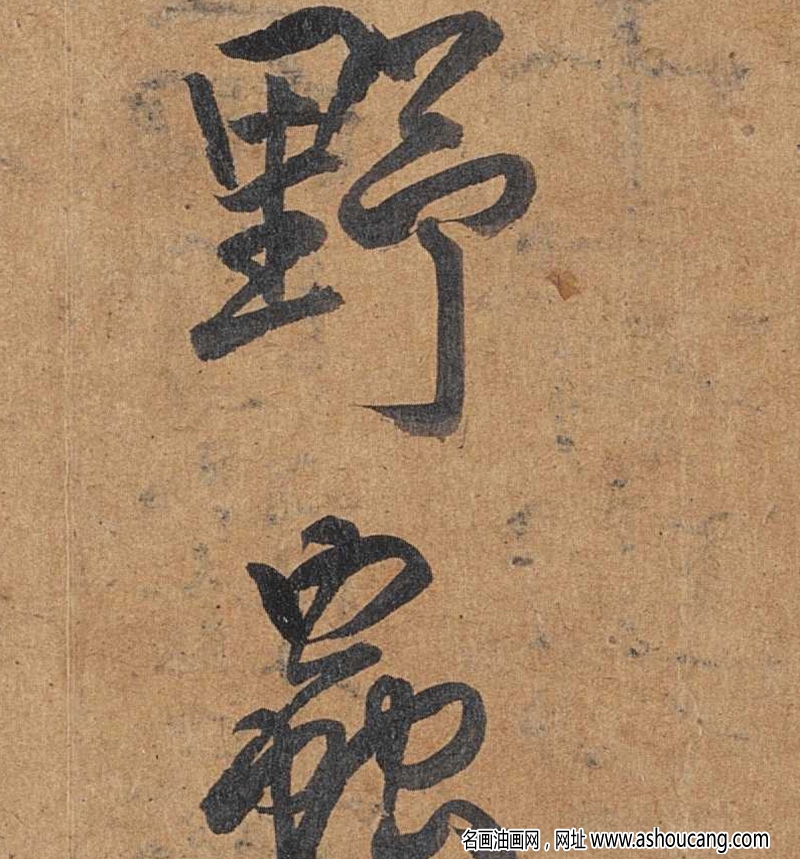 野
蟲
名画油画网，网址 www.ashoucang.com